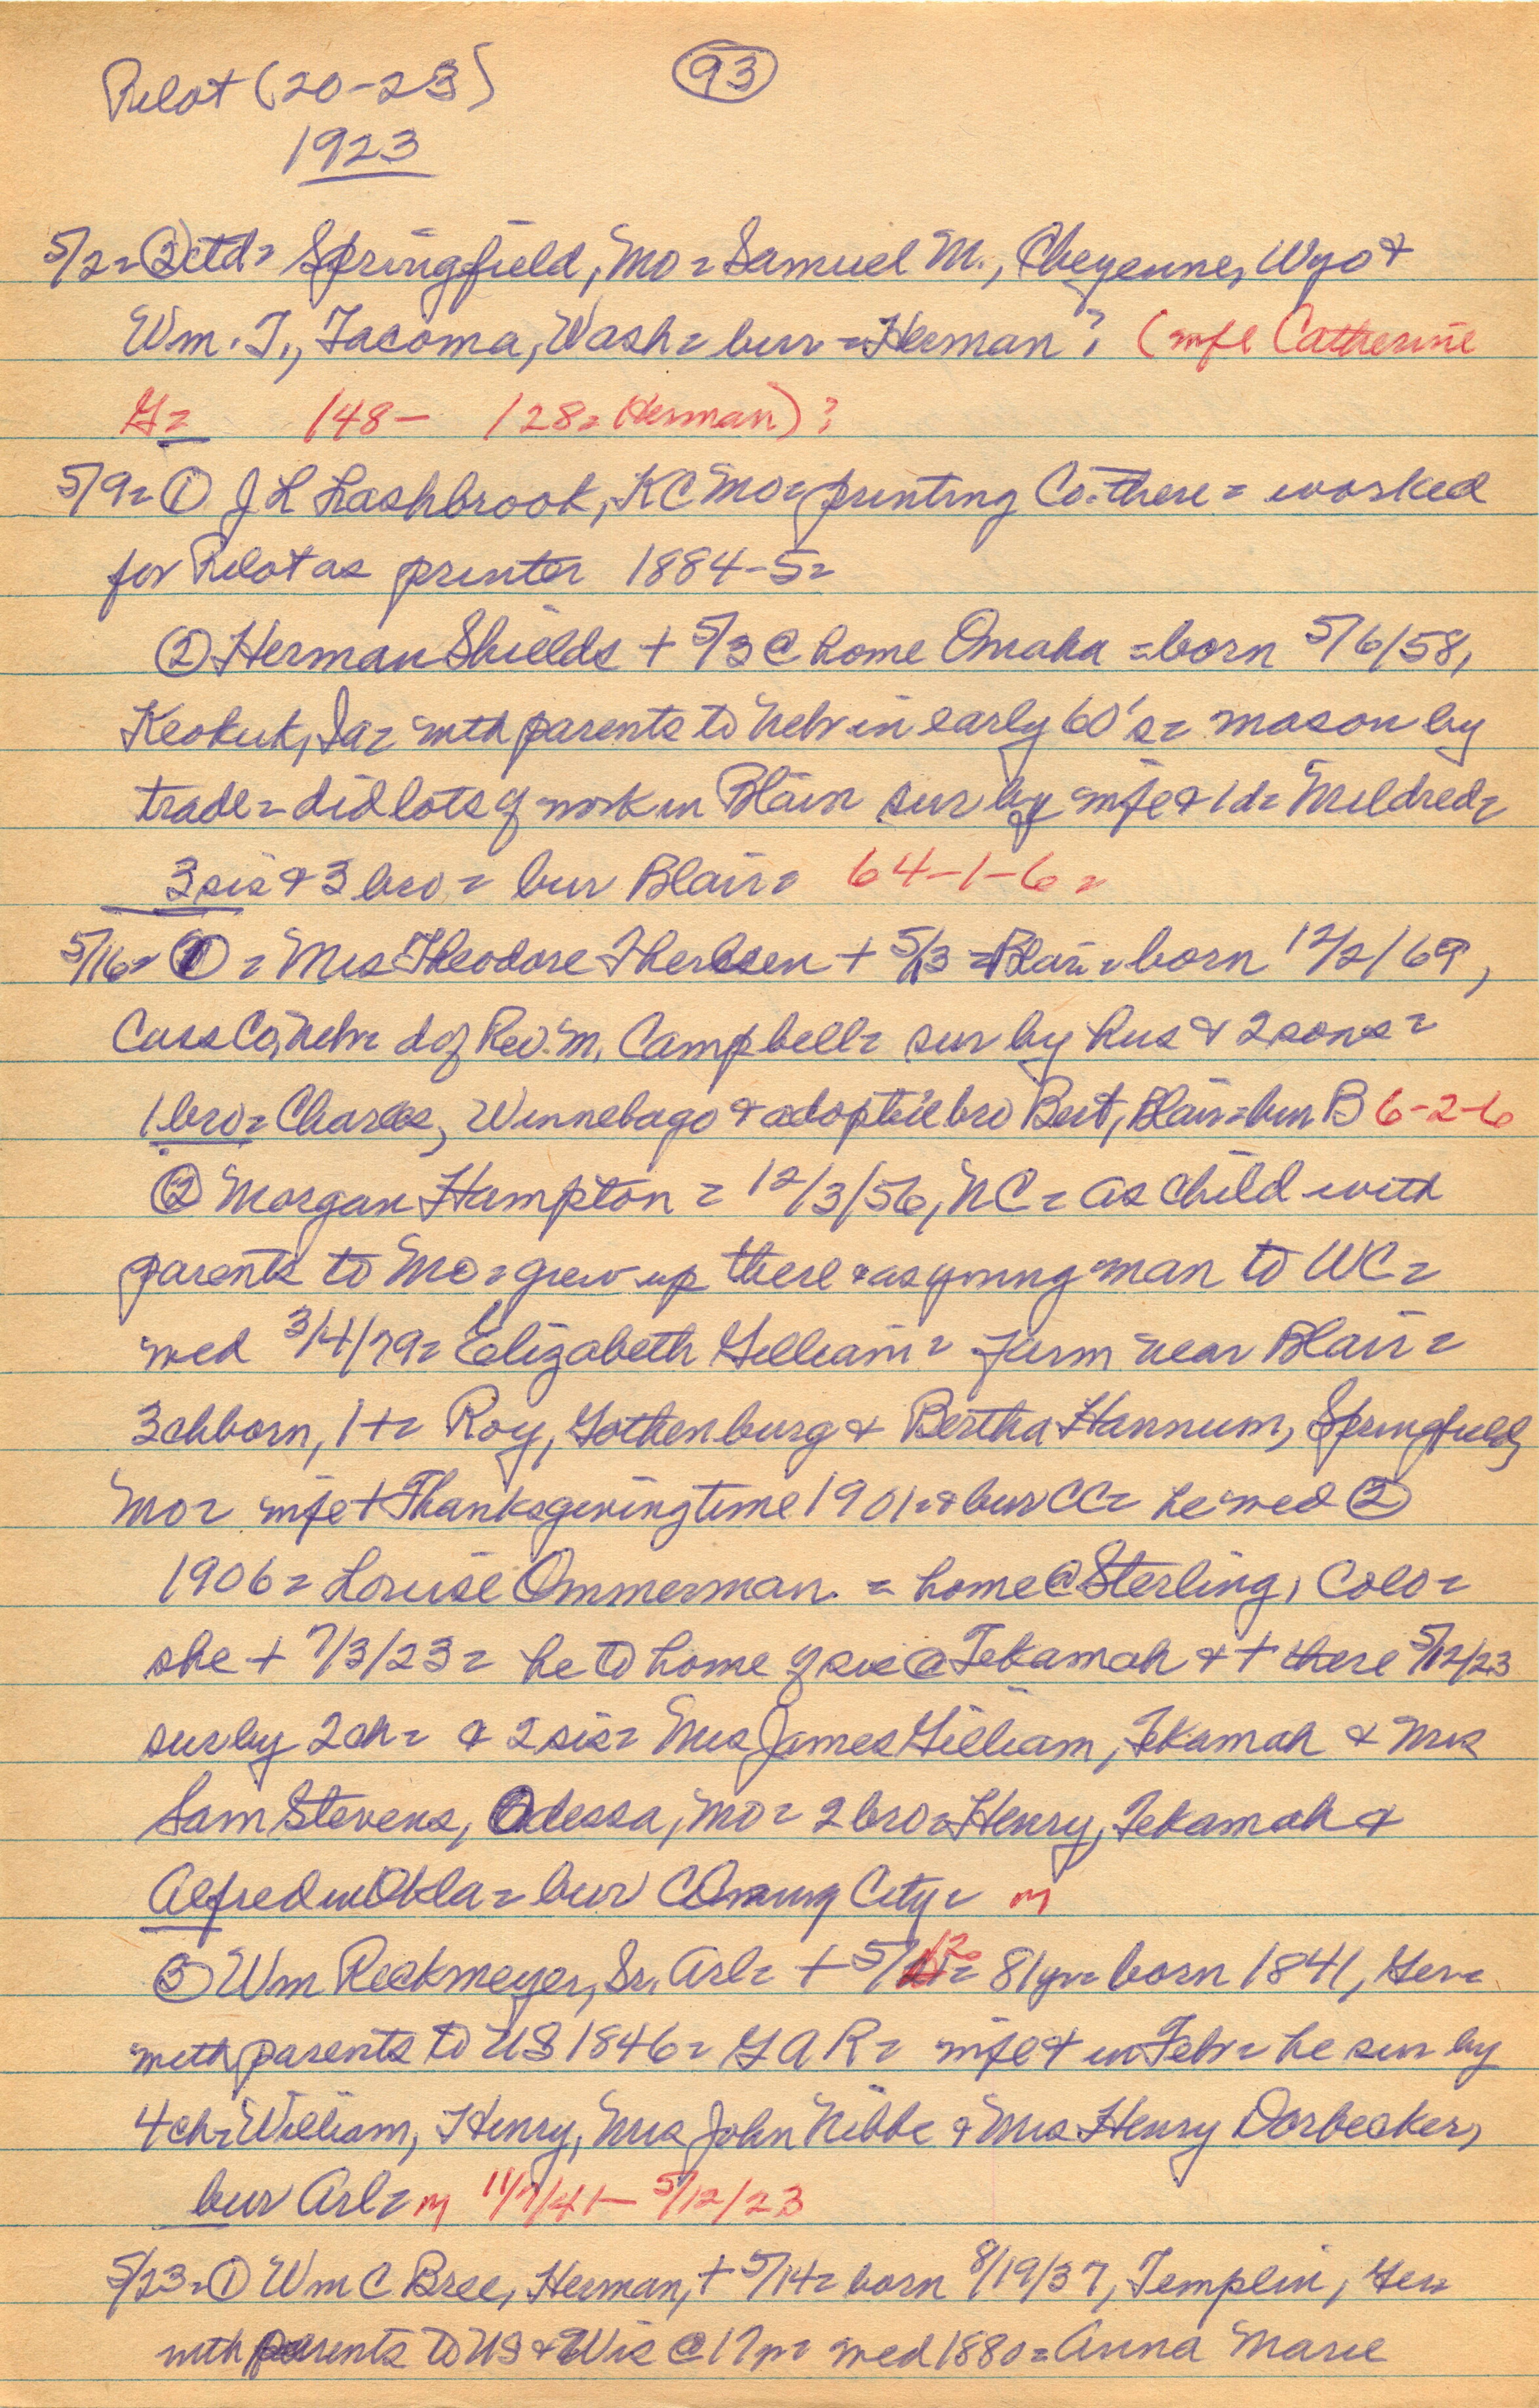 Pilot (20-23) 93
1923
5/2= ② ctd= Springfield, Mo = Samuel M., Cheyenne, Wyo &
Wm. T., Tacoma, Wash = bur = Herman? (wife Catherine
G= /48- /28= Herman)?
5/9= ① J L Lashbrook, KC Mo= printing Co. there = worked
for Pilot as printer 1884-5=
② Herman Shields + 5/3 @ home Omaha = born 5/6/58,
Keokuk, Ia= with parents to Nebr in early 60's= mason by
trade = did lots of work in Blair sur by wife & 1 d= Mildred=
3 sis & 3 bro = bur Blair= 64-1-6=
5/16= ① = Mrs Theodore Therksen + 5/13 = Blair = born 12/2/69,
Cass Co, Nebr= d of Rev. M. Campbell= sur by hus & 2 sons =
1 bro= Charles, Winnebago & adoptive bro Bert, Blair= bur B 6-2-6
② Morgan Hampton = 12/3/56, NC = as child with
parents to Mo = grew up there & as young man to WC =
wed 3/4/79= Elizabeth Gilliam = farm near Blair =
3 ch born, 1 += Roy, Gothenburg & Bertha Hannum, Springfield,
Mo= wife + Thanksgiving time 1901= & bur CC= he wed ②
1906 = Louise Ommerman. = home @ Sterling, Colo=
she + 7/3/23= he to home of sis @ Tekamah & + there 5/12/23
sur by 2 ch= & 2 sis= Mrs James Gilliam, Tekamah & Mrs
Sam Stevens, Odessa, Mo= 2 bro= Henry, Tekamah &
Alfred in Okla = bur Cuming City= m
③ Wm Reckmeyer, Sr, Arl= + 5/12= 81 yr= born 1841, Ger=
with parents to US 1846= G A R= wife + in Febr= he sur by
4 ch= William, Henry, Mrs John Nibbe & Mrs Henry Dorbecker,
bur Arl= m 11/7/41- 5/12/23
5/23= ① Wm C Bree, Herman, + 5/14= born 8/19/37, Templin, Ger=
with parents to US & Wis @ 17 yr= wed 1880= Anna Marie